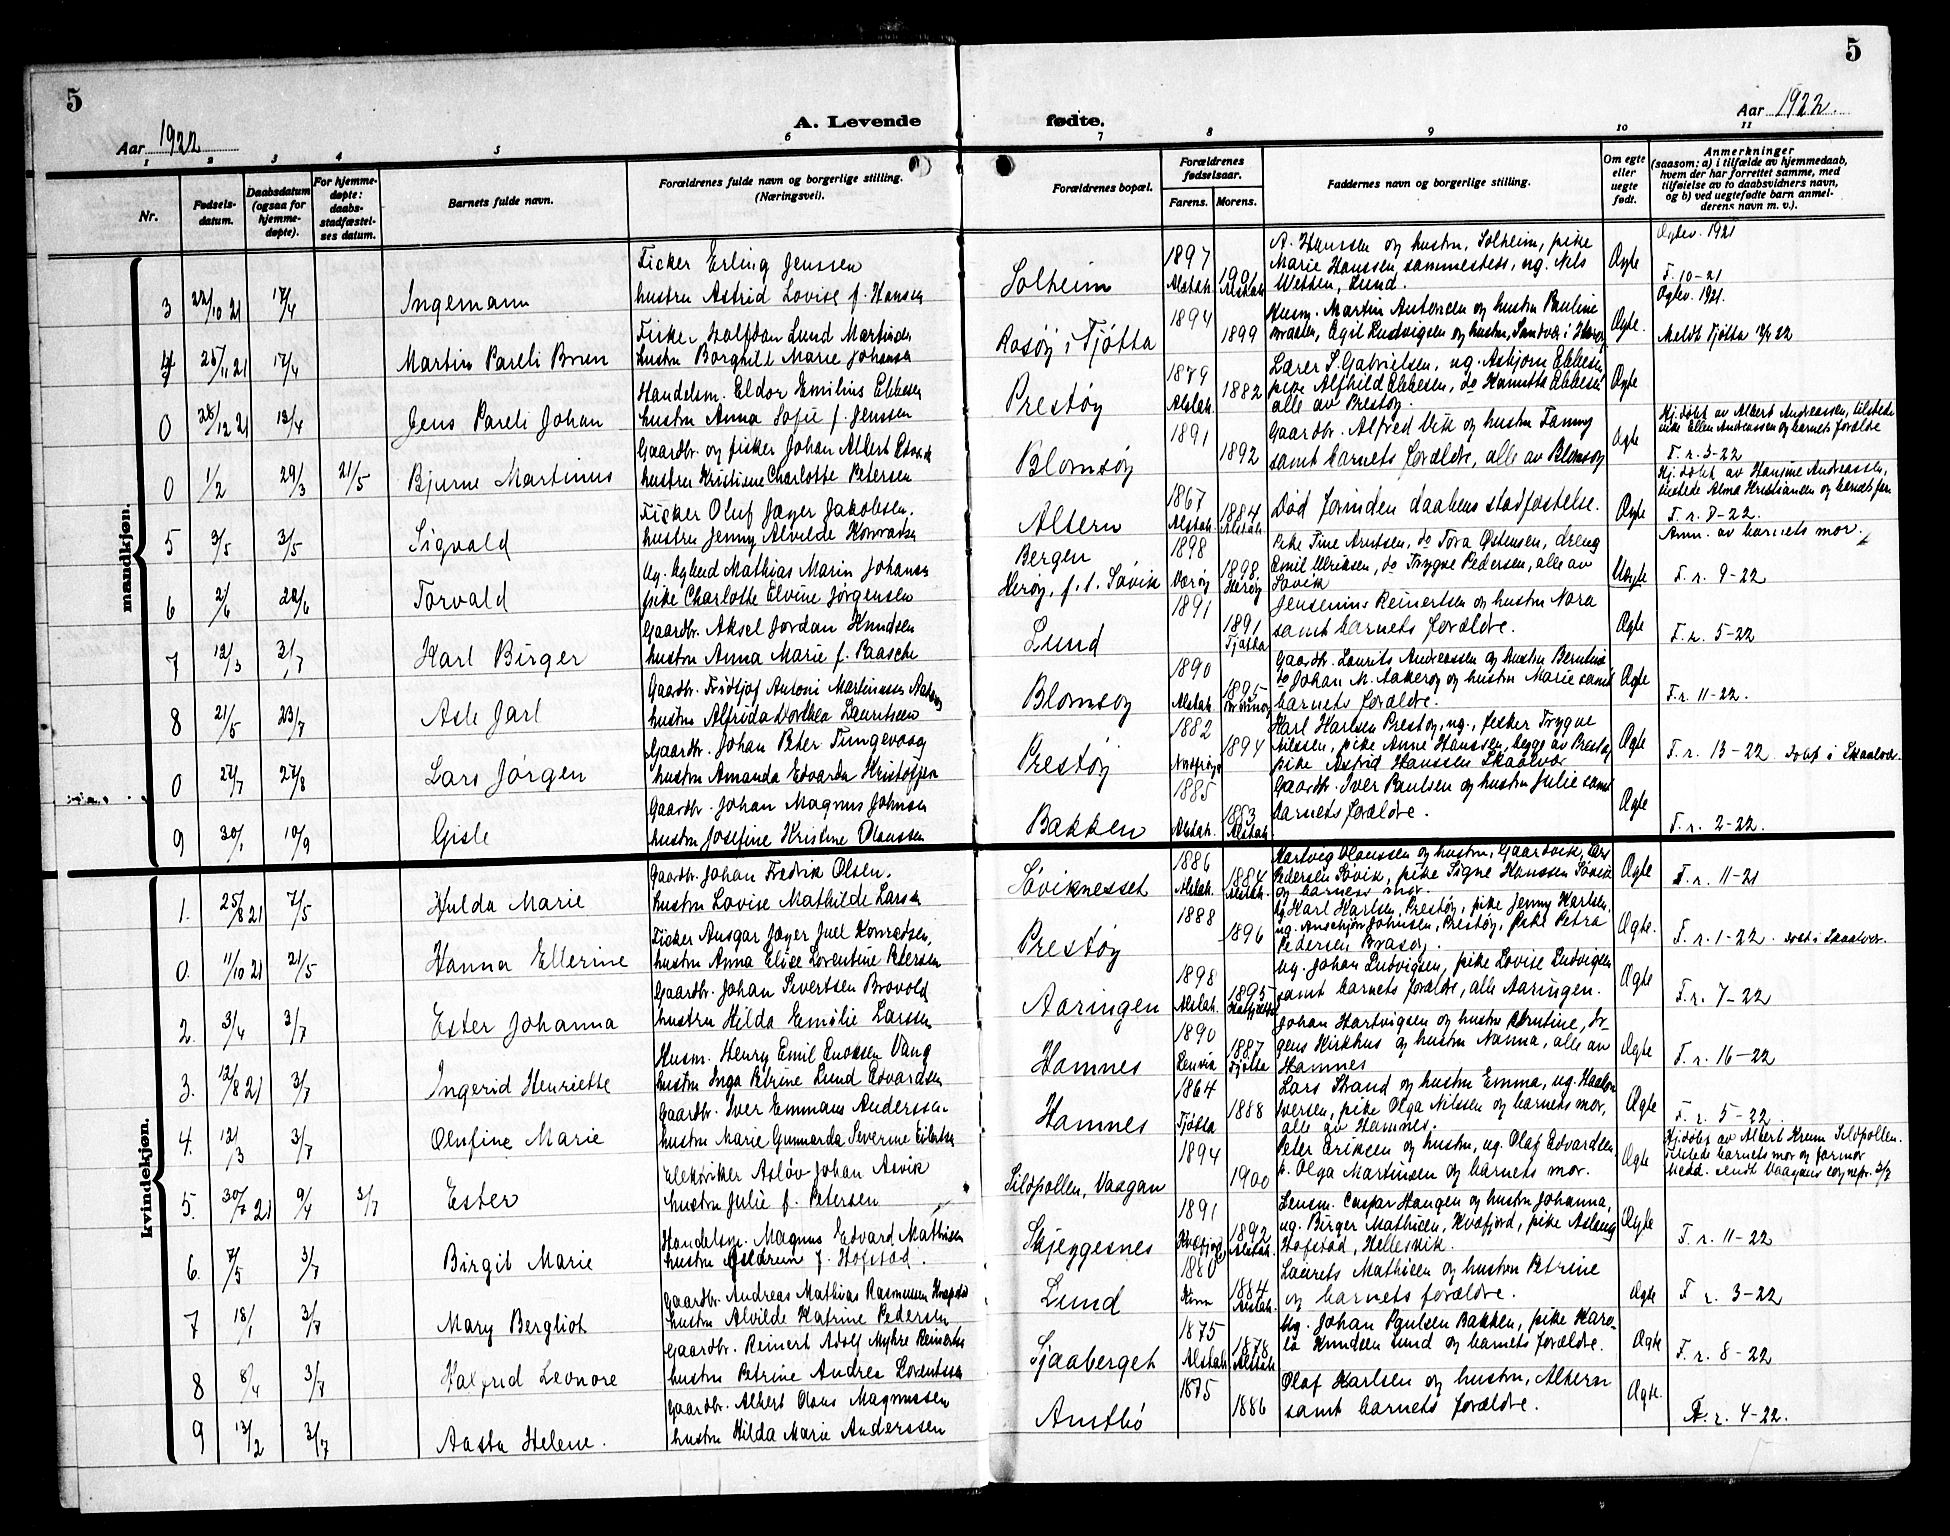 5
5
Aar 1922
A. Levende fødte.
Aar 1922.
1 2 3 4 5 6 7 8 9 10 11
Nr.
Fødsels-datum.
Daabsdatum (ogsaa for hjemme-døpte).
For hjemme-døpte: daabs-stadfæstel-ses datum.
Barnets fulde navn.
Forældrenes fulde navn og borgerlige stilling.
(Næringsvei).
Forældrenes bopæl.
Forældrenes fødselsaar.
Farens. Morens.
Faddernes navn og borgerlige stilling.
Om egte eller uegte født.
Anmerkninger
(saasom: a) i tilfælde av hjemmedaab, hvem der har forrettet samme, med tilføielse av to daabsvidners navn, og b) ved uegtefødte barn anmel-derens navn m. v.).
mandkjøn.
3 22/10 21 17/4 Ingemann
Ficker Erling Jenssen
hustru Astrid Lovise f. Hansen
Solheim
1897 Alstah. 1901 Alstah.
A. Hanssen og hustru, Solheim, pike
Marie Hanssen, sammesteds, ug. Nils
Wetten, Lund.
Ægte
Opløv. 1921
F. 10-21
4 25/11 21 17/4 Martin Pareli Brun
Fisker Halfdan Lund Martinsen
hustru Borghill Marie Johansen
Rosøy i Tjøtta
1894 1899
Husm. Martin Antonsen og hustru Pauline
Egil Ludvigsen og hustru, Sandvær i Herøy
Ægte.
Opløv. 1921.
Meldt Tjøtta 12/6 22
0 28/12 21 13/4 Jens Pareli Johan
Handelsm. Eldor Emilius Ebbesen
hustru Anna Sofie f. Jenssen
Prestøy
1879 Alstah. 1882
Lærer S. Gabrielsen, ug. Asbjørn Ebbesen
pike Alfhild Ebbesen, do Hanette Ebbesen
alle av Prestøy.
Ægte
0 1/2 29/3 21/5 Bjarne Martinus
Gaardbr. og fisker Johan Albert
hustru Kristiane Charlotte Petersen
Blomsøy
1891 1892
Gaardbr. Alfred Vik og hustru Fanny
samt barnets forældre, alle av Blomsøy
Ægte
Hj.døbt av Albert Andreassen, tilstede
Ellen Andreassen og barnets forældre
F. r. 3-22
5 9/5 3/5 Sigvald
Ficker Oluf Jæger Jakobsen.
hustru Jenny Alvilde Konradsen
Altern
1867 Alstah. 1884 Alstah.
Død forinden daabens stadfæstelse.
Ægte
Hj.døbt av Hansine Andreassen,
tilstede Alma Kristiansen og barnets far.
F. r. 8-22.
6 2/6 22/6 Torvald
Ug. Mathias Marin Johansen
pike Charlotte Elvine Jørgensen
Bergen
Herøy, f. t. Søvik
1898 Værøy 1898 Herøy
Pike Tine Arntsen, do Tora Østensen, dreng
Emil Ulriksen, do Trygve Pedersen, alle av
Søvik
Uægte
Anm. av barnets mor.
F. r. 9-22
7 12/3 3/7 Karl Birger
Gaardbr. Aksel Jordan Knudsen
hustru Anna Marie f. Paasche
Lund
1891 1891 Tjøtta
Jensenius Reinertsen og hustru Nora
samt barnets forældre.
Ægte
F. r. 5-22
8 21/5 23/7 Asle Jarl
Gaardbr. Fridtjof Antoni Martinussen
hustru Alfrida Dorthea Lauritsen
Blomsøy
1890 Alstah. 1895 Brønnøy
Gaardbr. Laurits Andreassen og hustru Berntine
do Johan M. Aakerøy og hustru Marie samt
barnets forældre.
Ægte
F. r. 11-22.
0 27/7 27/8 Lars Jørgen
Gaardbr. Johan Peter Tungevaag
hustru Amanda Edvarda Kristoffersen
Prestøy
1882 1894
Karl Karlsen Prestøy, ug., fisker Trygve
Nilssen, pike Anne Hanssen, begge av Prestøy
pike Astrid Hanssen Skaalvær
Ægte
F. r. 13-22. Døbt i Skaalvær.
9 30/1 10/9 Gisle
Gaardbr. Johan Magnus Johnsen
hustru Josefine Kristine Olaussen
Bakken
1885 Alstah. 1883 Alstah.
Gaardbr. Iver Paulsen og hustru Julie samt
barnets forældre.
Ægte
F. r. 2-22.
kvindekjøn.
1. 25/8 21 7/5 Hulda Marie
Gaardbr. Johan Fredrik Olsen.
hustru Lovise Mathilde Larsen
Søviknesset
1886 Alstah. 1884 Alstah.
Hartvig Olaussen og hustru, Gaardvik, Lars
Pedersen Søvik, pike Signe Hanssen Søvik
og barnets mor.
Ægte
F. r. 11-21
0. 11/10 21 21/5 Hanna Ellerine
Ficker Ansgar Jæger Juel Konradsen,
hustru Anna Elise Lorentine Petersen
Prestøy
1888 1896
Ug Karl Karlsen, Prestøy, pike Jenny Karlsen,
ug. Anskjær Johnsen, Prestøy, pike Petra
Pedersen Brasøy.
Ægte.
F. r. 1-22. Døbt i Skaalvær.
2. 3/4 3/7 Ester Johanna
Gaardbr. Johan Sivertsen Brovold
hustru Hilda Emilie Larssen
Aaringen
1898 Alstah. 1895
Ug. Johan Ludvigsen, pike Lovise Ludvigsen
samt barnets forældre, alle Aaringen.
Ægte
F. r. 7-22
3. 12/8 21 3/7 Ingerid Henriette
Husm. Henry Emil Enoksen Vang
hustru Inga Petrine Lund Edvardsen
Hamnes
1890 Lenvik 1887 Tjøtta
Johan Hartvigsen og hustru Kristine, Jør
gens Kirkhus og hustru Nanna, alle av
Hamnes
Ægte
F. r. 16-22
4. 12/3 3/7 Olufine Marie
Gaardbr. Iver Emmans Anderssen
hustru Marie Gunnarda Severine Eilertsen
Hamnes
1864 Tjøtta 1888
Lars Strand og hustru Emma, ug. Haakon
Iversen, pike Olga Nilssen og barnets mor,
alle av Hamnes.
Ægte
F. r. 5-22.
5. 30/7 21 9/4 3/7 Ester
Elektriker Asløv Johan Asvik
hustru Julie f. Petersen
Sildpollen, Vaagan
1894 1900
Peter Eriksen og hustru, ug. Olaf Edvardsen
p. Olga Martinsen og barnets mor.
Ægte
Hj.døbt av Albert Krem Sildpollen.
tilstede barnets mor og farmor
Medd. sendt Vaagans sognepr. 3/7
6. 7/5 3/7 Birgit Marie
Handelsm. Magnus Edvard Mathisen
hustru Gudrun f. Hofstad.
Skjeggesnes
1891 Kvæfjord 1892 Alstah.
Lensm. Caspar Haugen og hustru Johanna,
ug. Birger Mathisen, Kvæfjord, pike Aslaug
Hofstad, Hellesvik.
Ægte
F. r. 11-22
7 18/1 3/7 Mary Bergliot
Gaardbr. Andreas Mathias Rasmussen
hustru Alvilde Katrine Pedersen
Lund
1880 Kinn 1884 Alstah.
Laurits Mathisen og hustru Petrine
og barnets forældre.
Ægte
F r. 3-22
8 8/4 3/7 Halfrid Leonore
Gaardbr. Reinert Adolf Myhre Reinertsen
hustru Petrine Andrea Lorentsen
Sjaaberget
1875 Alstah. 1878 Alstah.
Ug. Johan Paulsen Bakken, pike Karo-
la Knudsen Lund og barnets forældre.
Ægte
F. r. 8-22
9 13/2 3/7 Aasta Helene.
Gaardbr. Albert Olaus Magnussen
hustru Hilda Marie Anderssen
Austbø
1875 1886
Olaf Karlsen og hustru, Altern
samt barnets forældre.
Ægte.
F. r. 4-22.